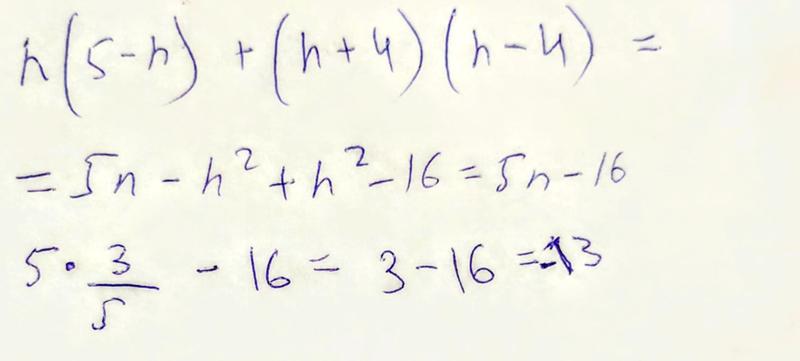 n(5-n) + (n+4)(n-4) =
= 5n - n² + n² - 16 = 5n - 16
5 · 3/5 - 16 = 3 - 16 = -13